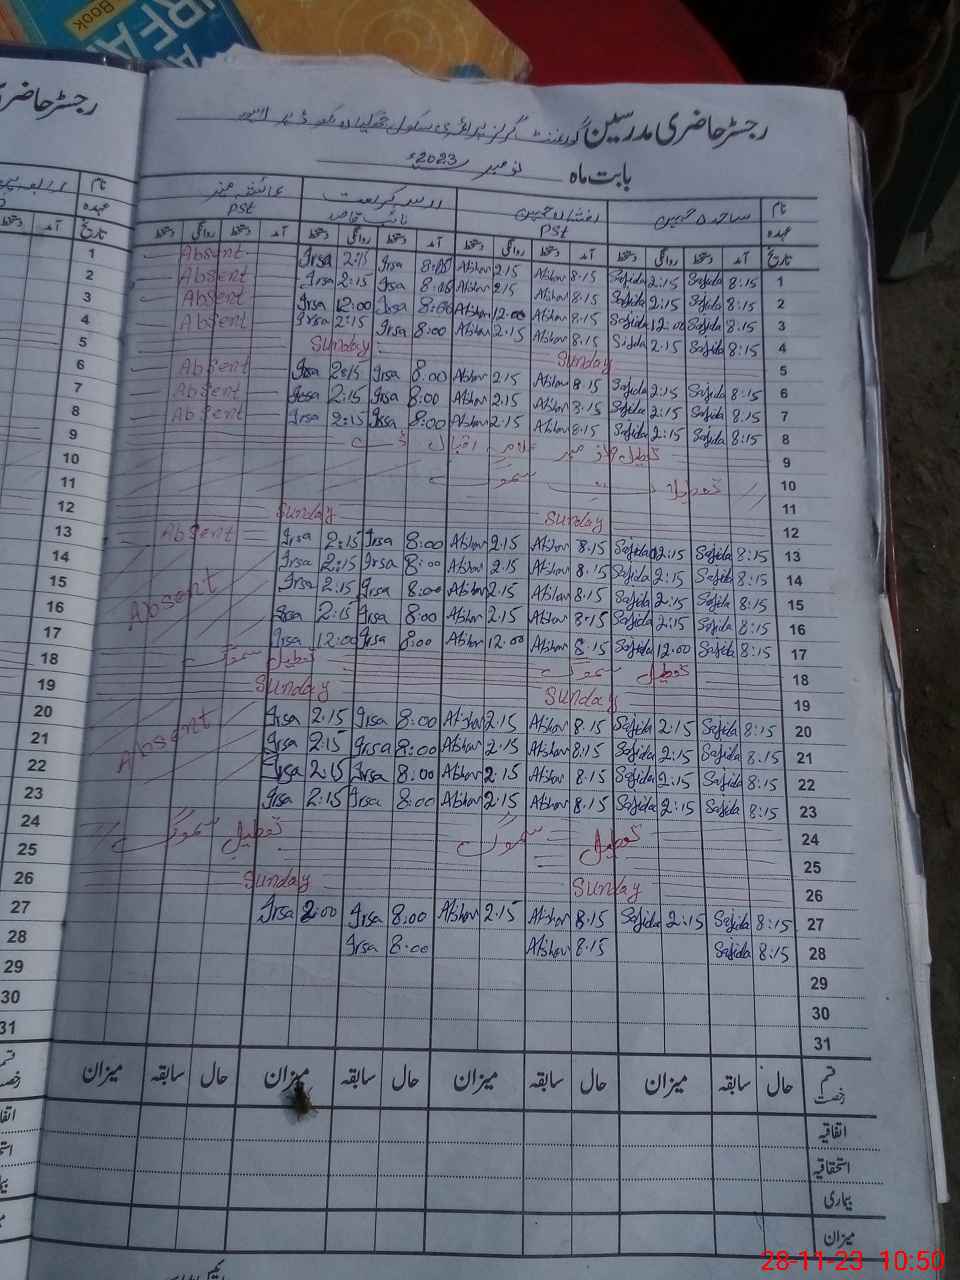 Book
رجسٹر حاضری
رجسٹر حاضری مدرسین گورنمنٹ گرلز پرائمری سکول
بابت ماہ نومبر 2023ء
نام ساجدہ حسین افشاں حسین
عہدہ PST نائب قاصد PST
تاریخ آمد دستخط روانگی دستخط آمد دستخط روانگی دستخط آمد دستخط روانگی دستخط آمد دستخط روانگی دستخط
1 8:15 Sajida 2:15 Sajida 8.15 Afshan 2.15 Afshan 8:05 Irsa 2:15 Irsa Absent 1
2 8:15 Sajida 2:15 Sajida 8.15 Afshan 2.15 Afshan 8:05 Irsa 2:15 Irsa Absent 2
3 8:15 Sajida 12:00 Sajida 8.15 Afshan 12.00 Afshan 8:00 Irsa 12:00 Irsa Absent 3
4 8:15 Sajida 2:15 Sajida 8.15 Afshan 2.15 Afshan 8:00 Irsa 2:15 Irsa Absent 4
5 Sunday Sunday 5
6 8:15 Sajida 2:15 Sajida 8.15 Afshan 2.15 Afshan 8:00 Irsa 2:15 Irsa Absent 6
7 8:15 Sajida 2:15 Sajida 8.15 Afshan 2.15 Afshan 8:00 Irsa 2:15 Irsa Absent 7
8 8:15 Sajida 2:15 Sajida 8.15 Afshan 2.15 Afshan 8:00 Irsa 2:15 Irsa Absent 8
9 تعطیل علامہ اقبال ڈے 9
10 تعطیلات سموگ 10
11 11
12 Sunday Sunday 12
13 8:15 Sajida 2:15 Sajida 8.15 Afshan 2.15 Afshan 8:00 Irsa 2:15 Irsa Absent 13
14 8:15 Sajida 2:15 Sajida 8.15 Afshan 2.15 Afshan 8:00 Irsa 2:15 Irsa 14
15 8:15 Sajida 2:15 Sajida 8.15 Afshan 2.15 Afshan 8:00 Irsa 2:15 Irsa Absent 15
16 8:15 Sajida 2:15 Sajida 8.15 Afshan 2.15 Afshan 8:00 Irsa 2:15 Irsa 16
17 8:15 Sajida 12.00 Sajida 8.15 Afshan 12.00 Afshan 8:00 Irsa 12:00 Irsa 17
18 تعطیل سموگ تعطیل سموگ 18
19 Sunday Sunday 19
20 8:15 Sajida 2:15 Sajida 8.15 Afshan 2.15 Afshan 8:00 Irsa 2:15 Irsa Absent 20
21 8:15 Sajida 2:15 Sajida 8.15 Afshan 2.15 Afshan 8:00 Irsa 2:15 Irsa 21
22 8:15 Sajida 2:15 Sajida 8.15 Afshan 2.15 Afshan 8:00 Irsa 2:15 Irsa 22
23 8:15 Sajida 2:15 Sajida 8.15 Afshan 2.15 Afshan 8:00 Irsa 2:15 Irsa 23
24 تعطیل سموگ تعطیل سموگ 24
25 25
26 Sunday Sunday 26
27 8:15 Sajida 2:15 Sajida 8.15 Afshan 2.15 Afshan 8:00 Irsa 2:00 Irsa 27
28 8:15 Sajida 8.15 Afshan 8:00 Irsa 28
29 29
30 30
31 31
قسم رخصت حال سابقہ میزان حال سابقہ میزان حال سابقہ میزان حال سابقہ میزان
اتفاقیہ
استحقاقیہ
بیماری
میزان
28-11-23 10:50